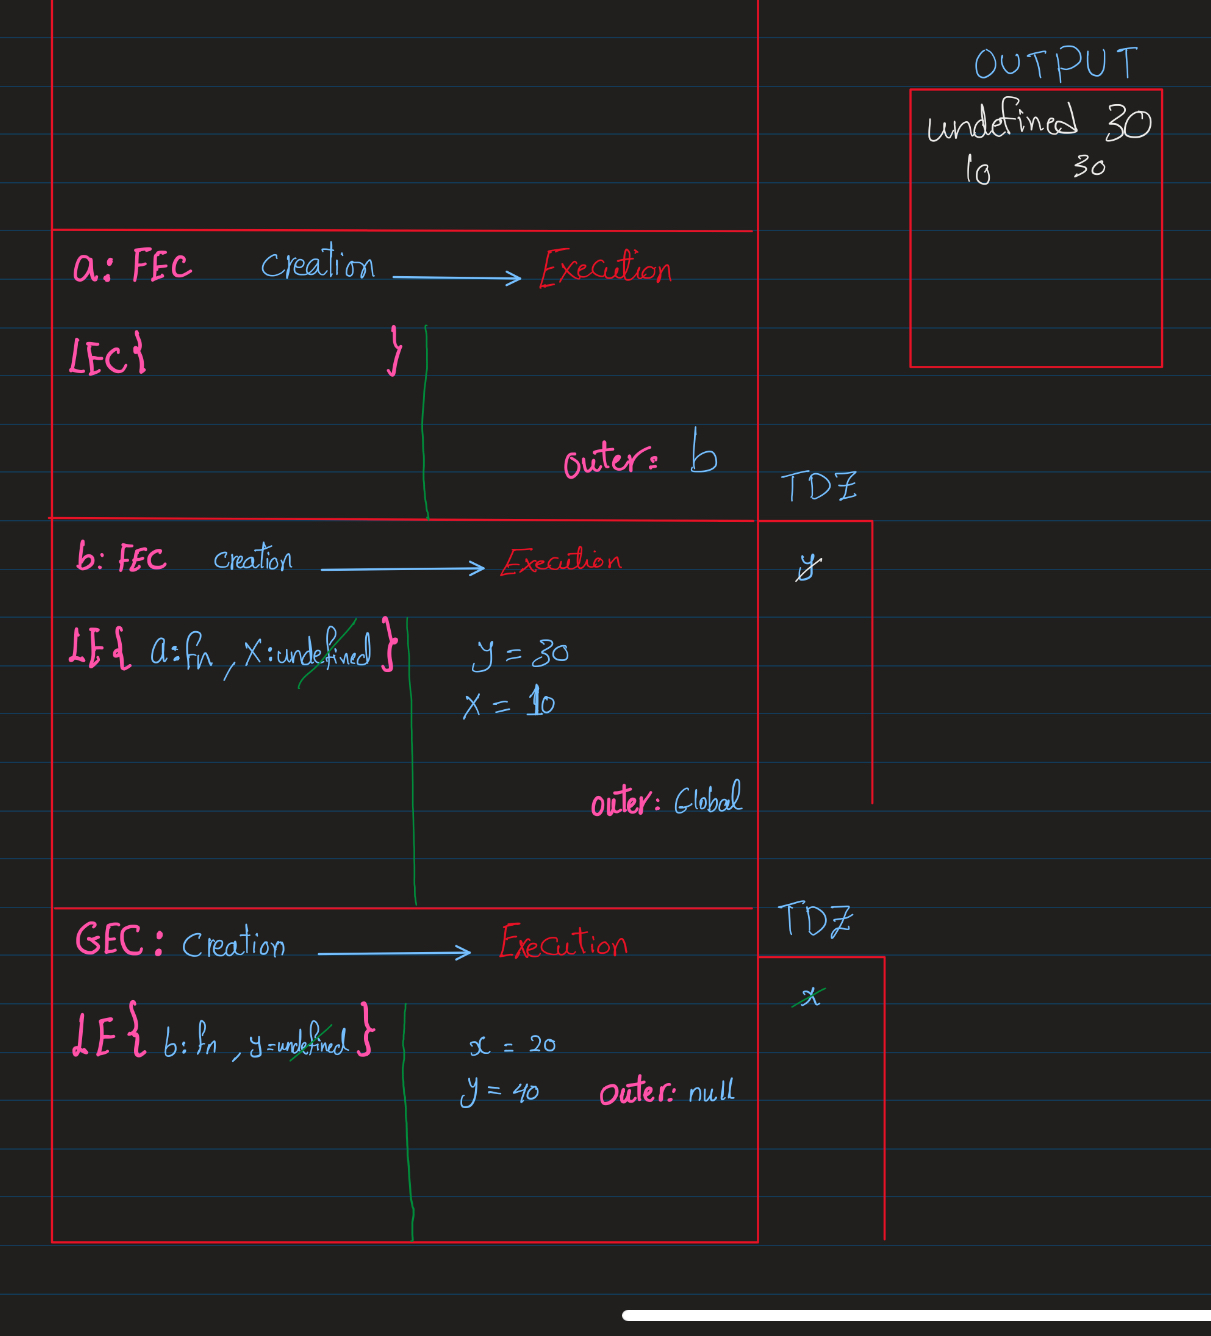 OUTPUT
undefined 30
10 30
a: FEC Creation Execution
LEC{ }
outer: b
TDZ
b: FEC Creation Execution
y
LE{ a:fn , x:undefined }
y = 30
x = 10
outer: Global
TDZ
GEC: Creation Execution
x
LE{ b:fn , y=undefined }
x = 20
y = 40 outer: null